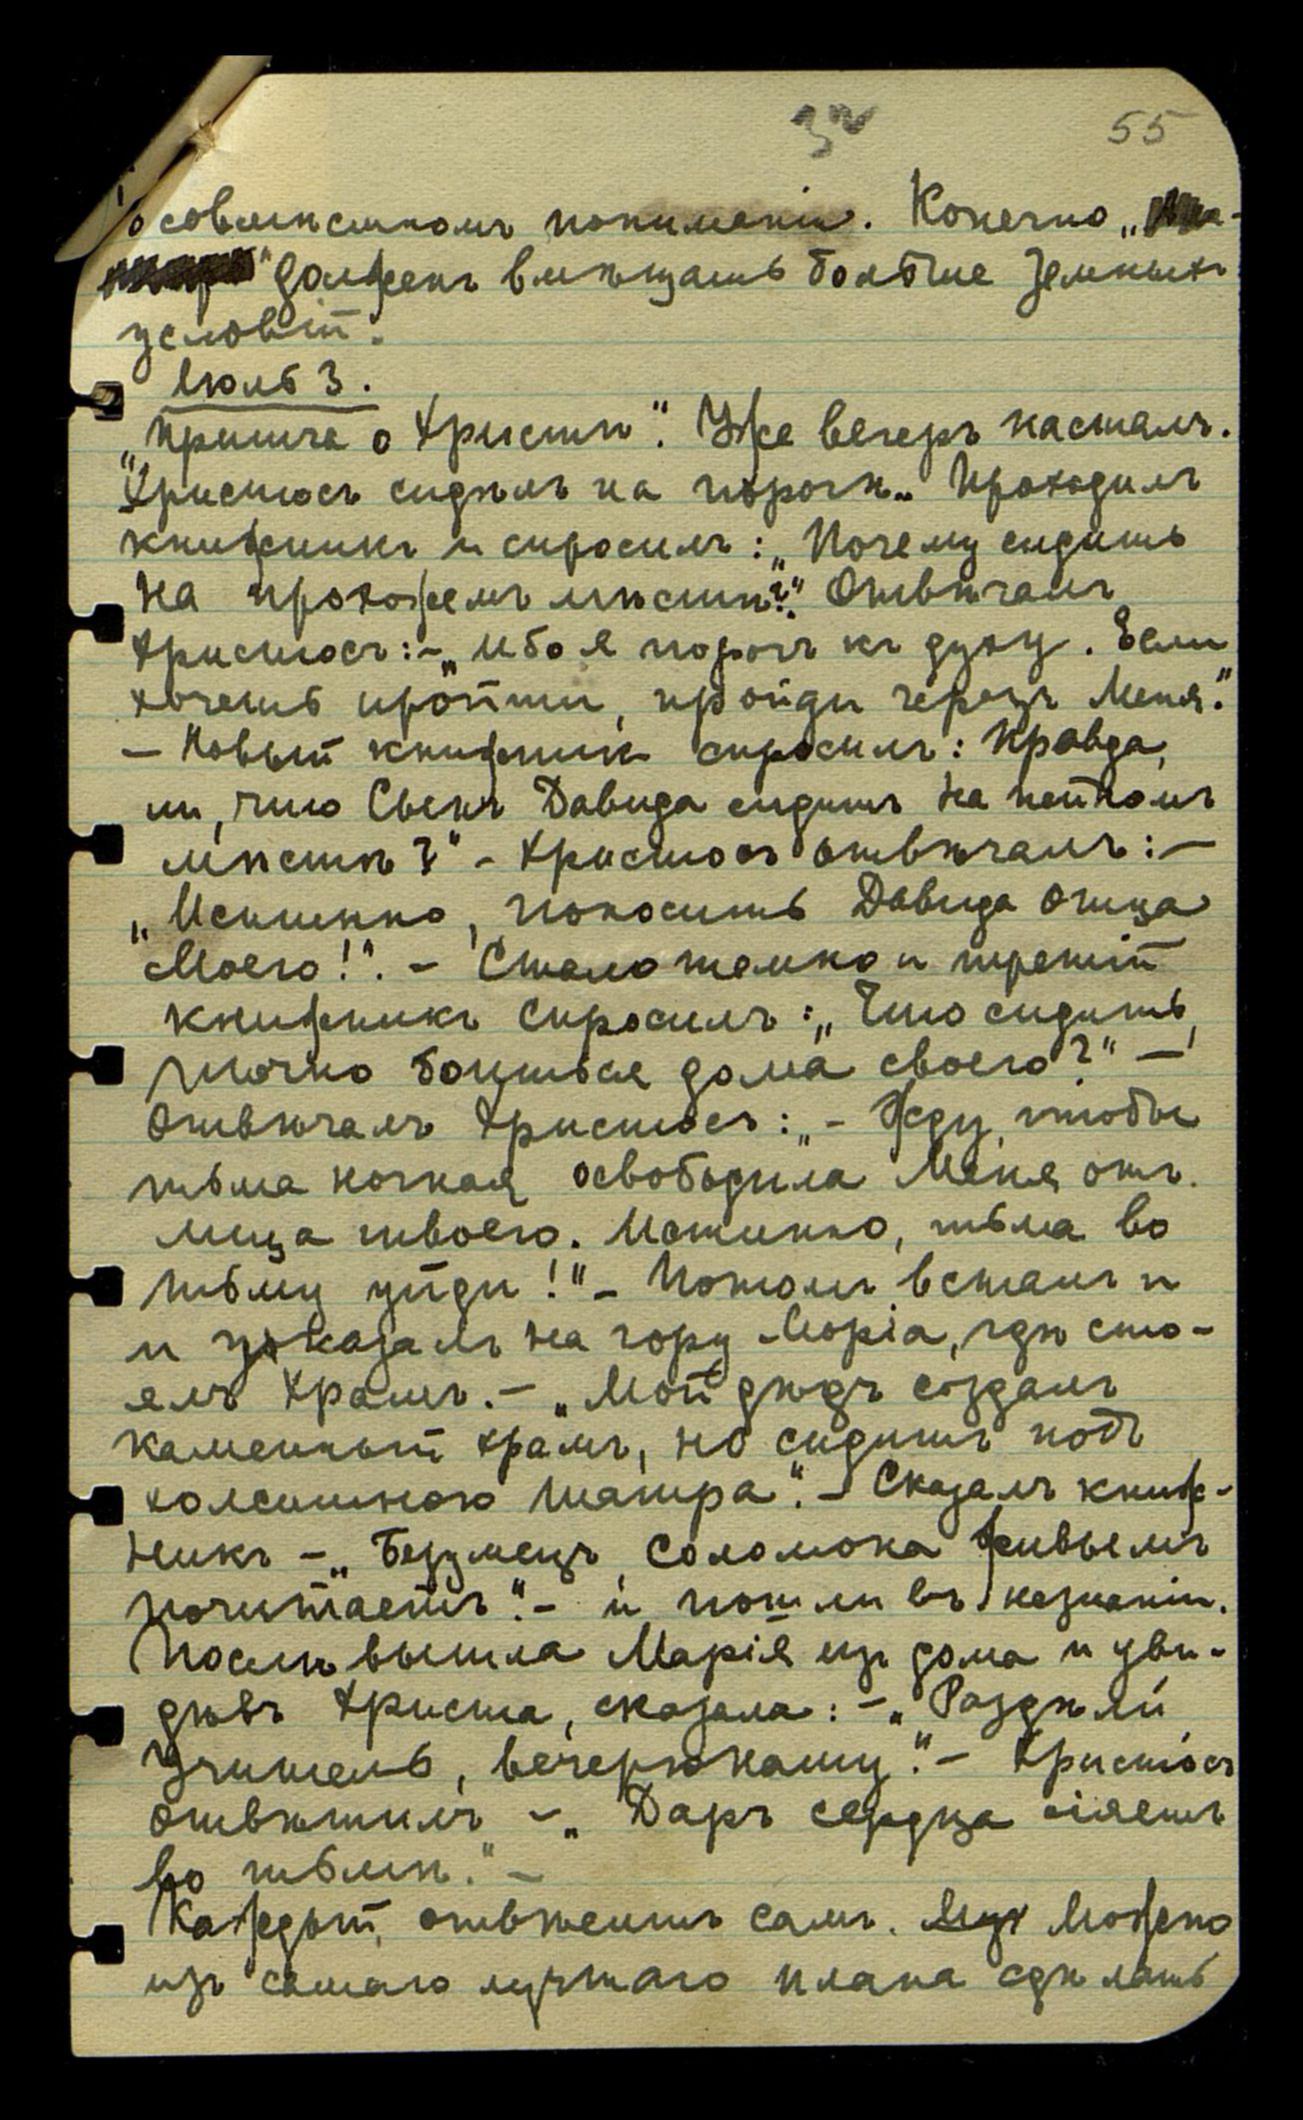 32 55
о совместномъ пониманіи. Конечно „
" долженъ вмѣщать больше земныхъ
условій.
Іюль 3.
„Притча о Христѣ". Уже вечеръ насталъ.
Христосъ сидѣлъ на порогѣ. Проходилъ
книжникъ и спросилъ: „Почему сидишь
на прохожемъ мѣстѣ?" Отвѣчалъ
Христосъ: – „Ибо я порогъ къ духу. Если
хочешь пройти, пройди черезъ Меня."
– Новый книжник спросилъ: Правда,
ли, что Сынъ Давида сидитъ на пёсьемъ
мѣстѣ?" – Христосъ отвѣчалъ: –
„Истинно, поносишь Давида Отца
Моего!". – Стало темно и третій
книжникъ спросилъ: „Что сидишь,
точно боишься дома своего?" –
Отвѣчалъ Христосъ: „– Жду, чтобы
тьма ночная освободила Меня отъ
лица твоего. Истинно, тьма во
тьму уйди!" – Потомъ всталъ и
и указалъ на гору Моріа, гдѣ сто-
ялъ Храмъ. – „Мой дѣдъ создалъ
каменный храмъ, но сидитъ подъ
холстиною шатра". – Сказалъ книж-
никъ – „Безумецъ, Соломона живымъ
почитаетъ". – и пошли въ незнаніи.
Послѣ вышла Марія изъ дома и уви-
дѣвъ Христа, сказала: – „Раздѣли
Учитель, вечерю нашу". – Христосъ
отвѣтилъ – „Даръ сердца сіяетъ
во тьмѣ." –
Каждый отвѣтитъ самъ. Можно
изъ самаго лучшаго плана сдѣлать